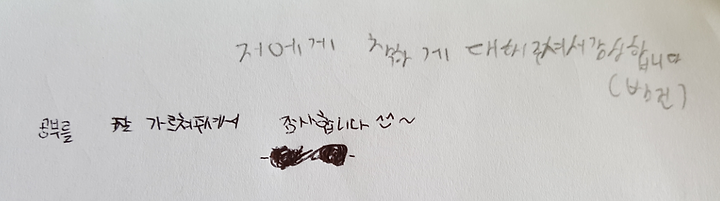 저에게 착하게 대해주셔서감사합니다
공부를 잘 가르쳐주셔서 감사합니다